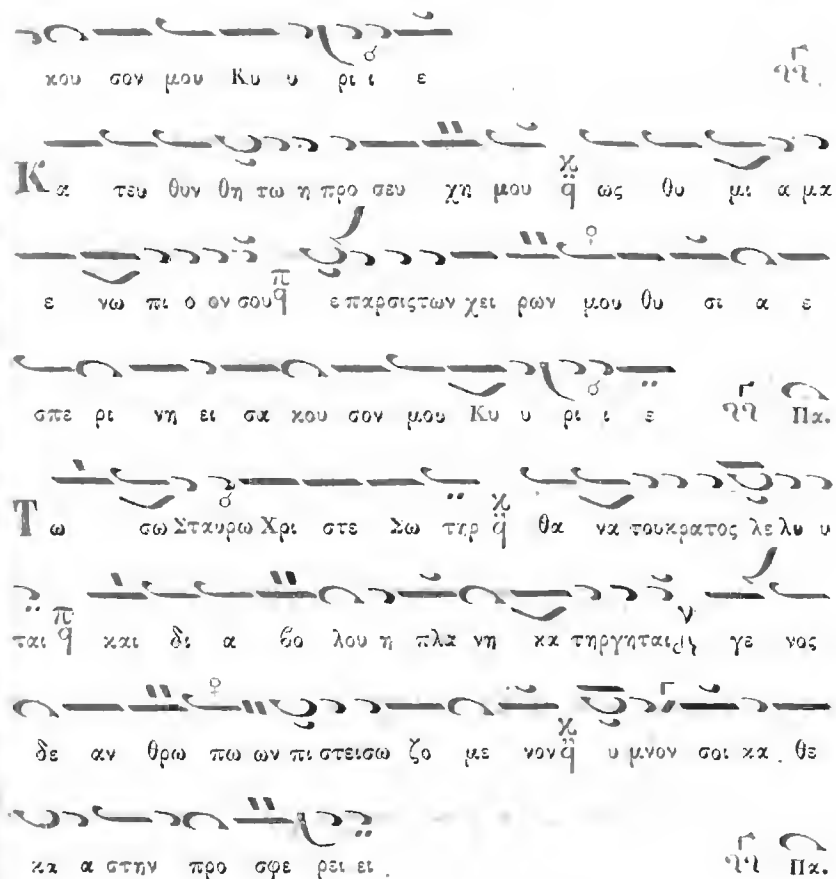 κου σον μου Κυ υ ρι ι ε
Κα τευ θυν θη τω η προ σευ χη μου ως θυ μι α μα
ε νω πι ο ον σου ε παρσιςτων χει ρων μου θυ σι α ε
σπε ρι νη ει σα κου σον μου Κυ υ ρι ι ε Πα.
Τω σω Σταυρω Χρι στε Σω τηρ θα να του κρατος λε λυ υ
ται και δι α βο λου η πλα νη κα τηργηται γε νος
δε αν θρω πω ων πι στεισω ζο με νον υ μνον σοι κα θε
κα α στην προ σφε ρει ει Πα.